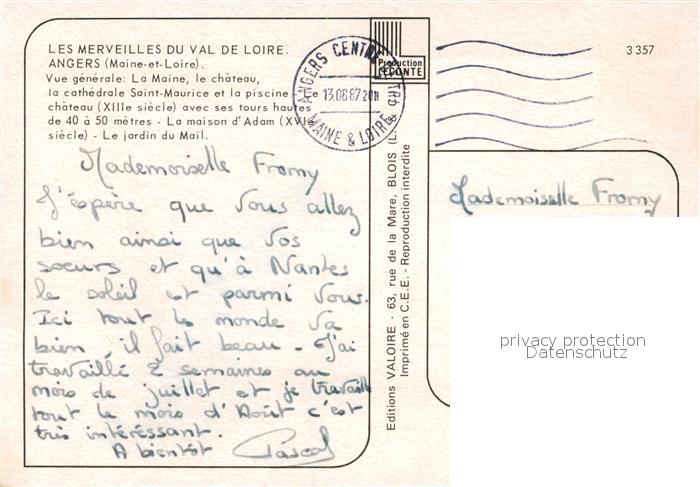 LES MERVEILLES DU VAL DE LOIRE.
ANGERS (Maine-et-Loire).
Vue générale: La Maine, le château,
la cathédrale Saint-Maurice et la piscine - Le
château (XIIIe siècle) avec ses tours hautes
de 40 à 50 mètres - La maison d'Adam (XVIe
siècle) - Le jardin du Mail.
Mademoiselle Fromy
J'éspère que vous allez
bien ainsi que vos
soeurs et qu'à Nantes
le soleil est parmi vous.
Ici tout le monde va
bien, il fait beau. J'ai
travaillé 2 semaines au
mois de juillet et je travaille
tout le mois d'Août c'est
très intéréssant.
A bientôt Pascal
ANGERS CENTRE
13.08 87 20H
MAINE & LOIRE
Production
LECONTE
3 357
Editions VALOIRE - 63, rue de la Mare, BLOIS
Imprimé en C.E.E. - Reproduction interdite
Mademoiselle Fromy
privacy protection
Datenschutz